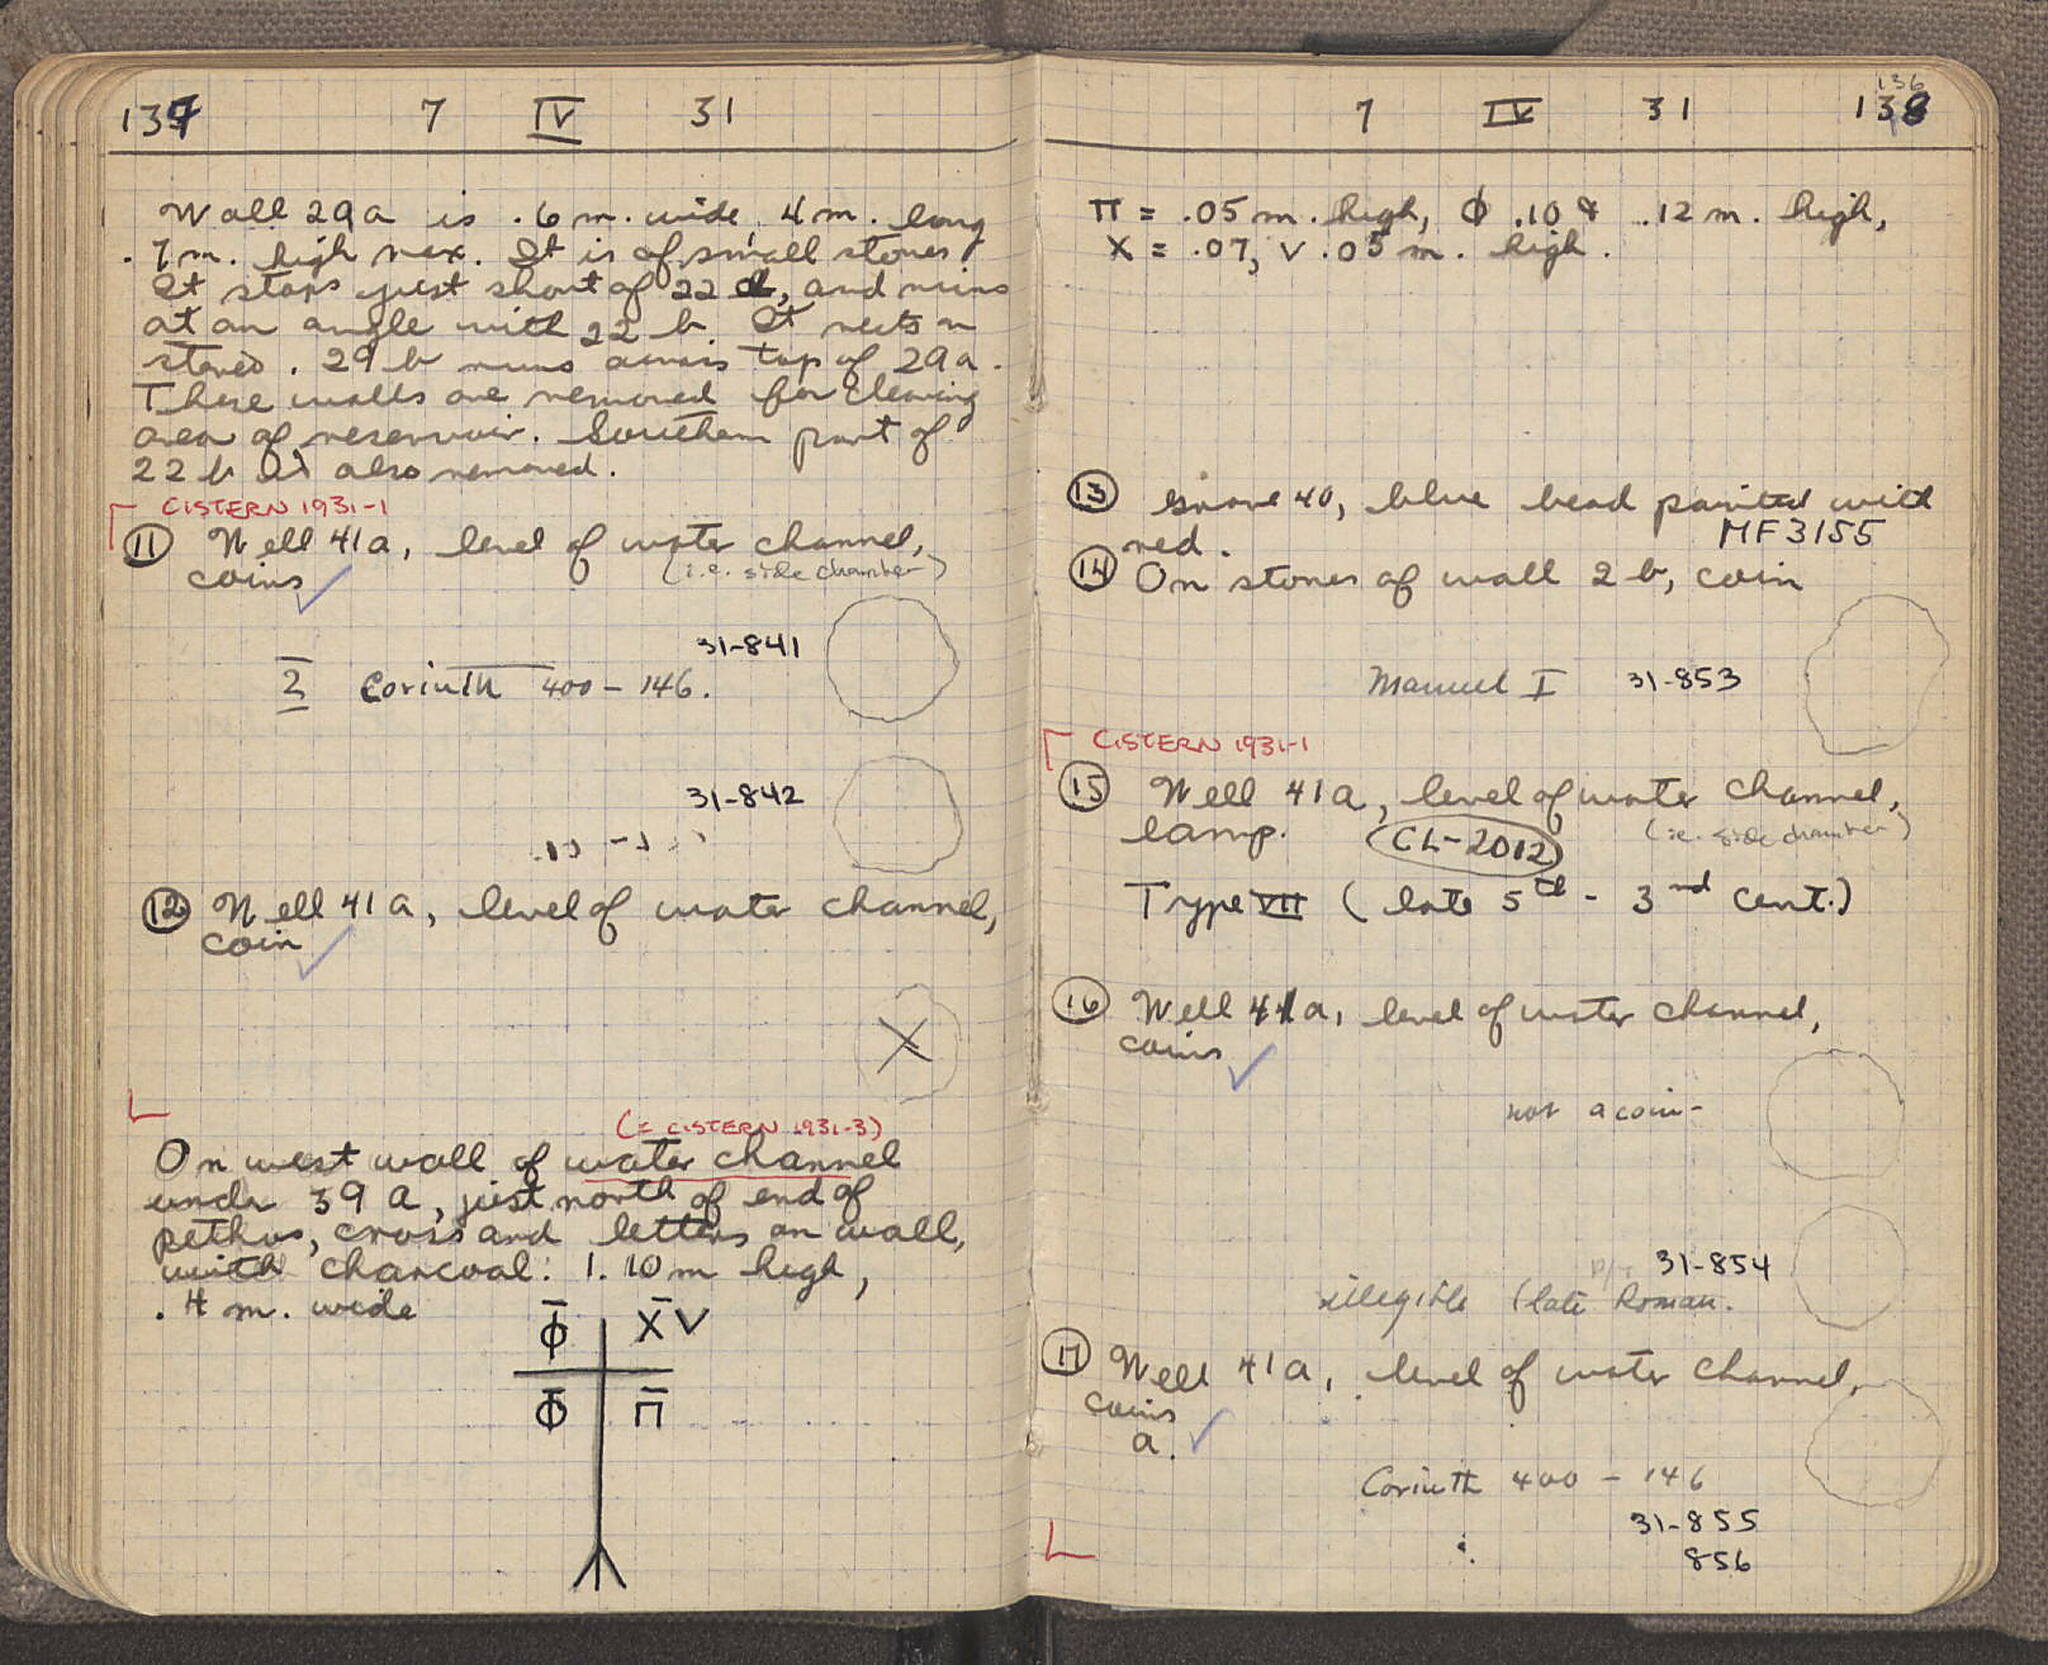 137 7 IV 31
Wall 29a is .6 m. wide, 4 m. long
.7 m. high max. It is of small stones
It stops just short of 22 d, and runs
at an angle with 22 b. It rests on
stereo. 29 b runs across top of 29a.
These walls are removed for clearing
area of reservoir. Southern part of
22 b is also removed.
CISTERN 1931-1
11 Well 41a, level of water channel,
coins (i.e. side chamber)
31-841
2 Corinth 400 - 146.
31-842
12 Well 41a, level of water channel,
coin
X
(= CISTERN 1931-3)
On west wall of water channel
under 39 a, just north of end of
pethos, cross and letters on wall,
with charcoal: 1.10 m high,
.4 m. wide
Φ X V
Φ Π
7 IV 31 138
136
Π = .05 m. high, Φ .10 & .12 m. high,
X = .07, V .05 m. high.
13 Grave 40, blue bead painted with
red. MF 3155
14 On stones of wall 2 b, coin
Manuel I 31-853
CISTERN 1931-1
15 Well 41a, level of water channel,
lamp. CL-2012 (i.e. side chamber)
Type VII (late 5th - 3rd cent.)
16 Well 41a, level of water channel,
coins
not a coin-
31-854
illegible (late Roman.
17 Well 41a, level of water channel,
coins
a.
Corinth 400 - 146
31-855
856